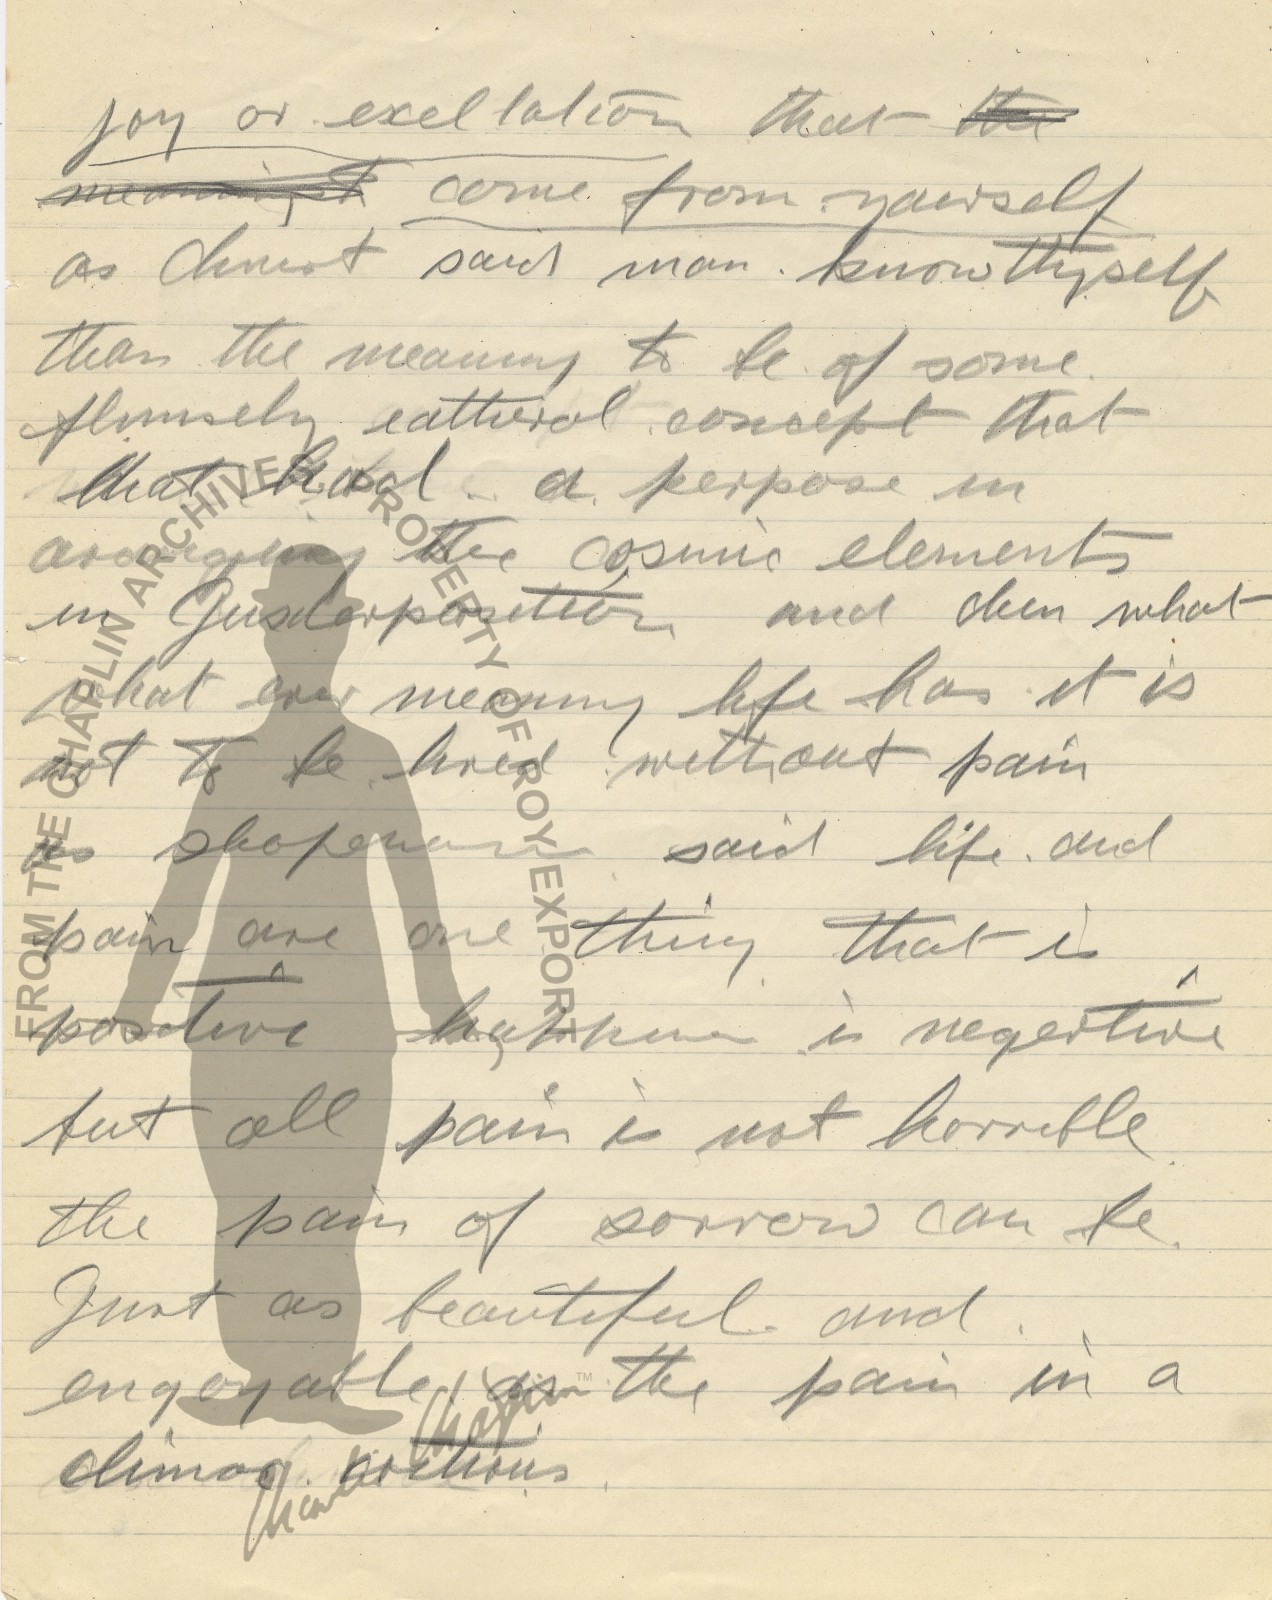 joy or exellation that the
come from yourself
as Christ said man. know thyself
than the meaning to be of some
flimsely eatheral concept that
that had a perpose in
the cosmic elements
in and then what
what ever meaning life has it is
not to be lived without pain
as said life and
pain are one thing that is
positive is negertive
but all pain is not horrible
the pain of sorrow can be
Just as beautiful and
engoyable as the pain in a
FROM THE CHAPLIN ARCHIVES PROPERTY OF ROY EXPORT
Charlie Chaplin™